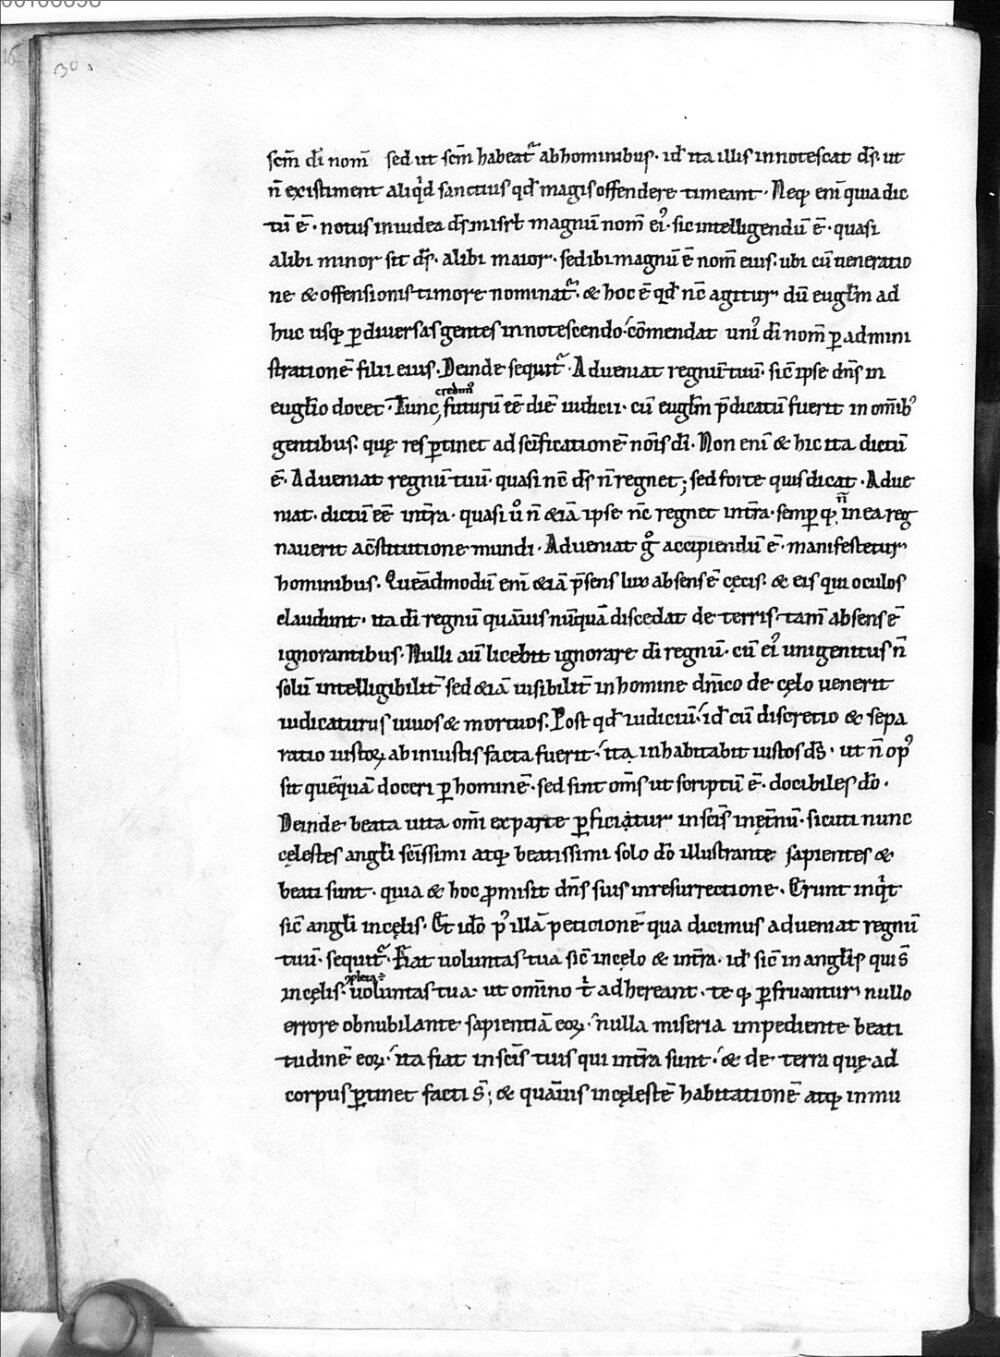 scm̄ di nom̄ sed ut scm̄ habeat᷑ ab hominibus. id ita illis innotescat ds. ut
n̄ existiment aliqͥd sanctius qđ magis offendere timeant. Neqꝫ eni quia dic
tū ē. notus in iudea ds in isrł magnū nom̄ ei᷒. sic intelligendū ē. quasi
alibi minor sit ds. alibi maior. sed ibi magnū ē nom̄ eius. ubi cū ueneratio
ne & offensionis timore nominat᷑. & hoc ē qđ nc̄ agitur dū eugłm ad
huc usqꝫ ꝑ diuersas gentes innotescendo. cōmendat uni᷒ di nom̄ ꝑ admini
strationē filii eius. Deinde sequit᷑. Adueniat regnū tuū. sic̄ ipse dn̄s in
credim᷒
eugłio docet. Tunc futurū eē diē iudicii. cū eugłm p̄dicatū fuerit in om̄ib᷒
gentibus. quę res ꝑtinet ad scīficationē nōis di. Non eni & hic ita dictū
ē. Adueniat regnū tuū. quasi nc̄ ds n̄ regnet; sed forte quis dicat. Adue
n̄
niat. dictū eē int̄ra. quasi ū n̄ &iā ipse nc̄ regnet int̄ra. sempꝑ qꝫ in ea reg
nauerit a cōstitutione mundi. Adueniat gͦ accipiendū ē. manifestetur
hominibus. Quēadmodū eni &iā p̄sens lux absens ē cęcis. & eis qui oculos
claudunt. ita di regnū quāuis nūquā discedat de terris. tam̄ absens ē
ignorantibus. Nulli aū licebit ignorare di regnū. cū ei᷒ unigenitus n̄
solū intelligibilit̄ sed &iā uisibilit̄ in homine dn̄ico de cęlo uenerit
iudicaturus uiuos & mortuos. Post qđ iudiciū. id cū discretio & sepa
ratio iustoꝝ ab iniustis facta fuerit. ita inhabitabit iustos ds. ut n̄ op᷒
sit quēquā doceri ꝑ hominē. sed sint om̄s ut scriptū ē. docibiles do.
Deinde beata uita om̄i ex parte ꝑficiatur in scīs inęt̄nū. sicuti nunc
cęlestes angłi scīssimi atqꝫ beatissimi solo do illustrante sapientes &
beati sunt. quia & hoc ꝓmisit dn̄s suis in resurrectione. Erunt inqͥt
sic̄ angłi in cęlis. Et ido p᷒ illā peticionē qua dicimus adueniat regnū
tuū. sequit᷑. Fiat uoluntas tua sic̄ in cęlo & int̄ra. id sic̄ in angłis qui s̄
ꝯpleta ÷
in cęlis. uoluntas tua. ut om̄ino t̄ adhereant. te qꝫ ꝑfruantur nullo
errore obnubilante sapientiā eoꝝ. nulla miseria impediente beati
tudinē eoꝝ. ita fiat in scīs tuis qui int̄ra sunt. & de terra quę ad
corpus ꝑtinet facti s̄; & quāuis in cęlestē habitationē atqꝫ inmu